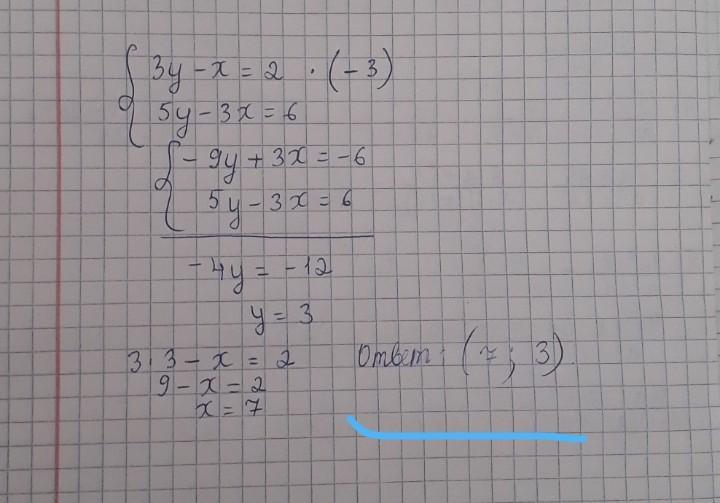 3y - x = 2 · (-3)
5y - 3x = 6
- 9y + 3x = -6
5y - 3x = 6
-4y = -12
y = 3
3 · 3 - x = 2
9 - x = 2
x = 7
Ответ: (7; 3).